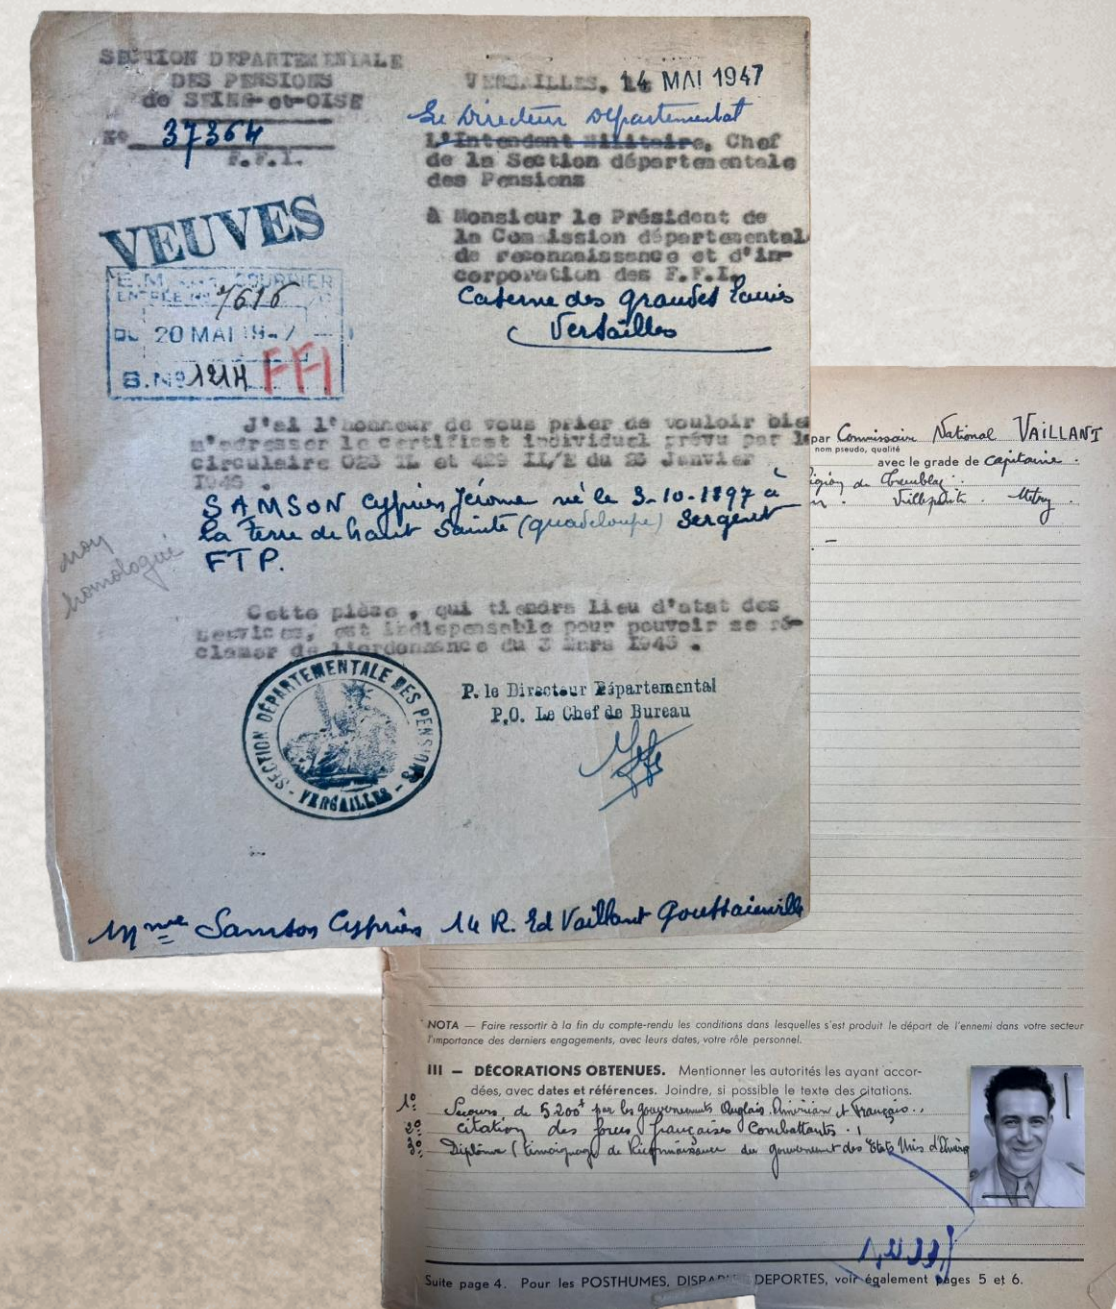 SECTION DEPARTEMENTALE
DES PENSIONS
de SEINE-et-OISE
No 37364
F.F.I.
VERSAILLES, 14 MAI 1947
Le Directeur Départemental
L'Intendant Militaire, Chef
de la Section départementale
des Pensions
à Monsieur le Président de
la Commission départemental
de reconnaissance et d'in-
corporation des F.F.I.
Caserne des grandes Ecuries
Versailles
VEUVES
E.M. COURRIER
ENTRÉE No 7616
DU 20 MAI 19-7
S.No 121H FFI
J'ai l'honneur de vous prier de vouloir bie
m'adresser le certificat individuel prévu par le
circulaire 023 IL et 429 IL/E du 25 Janvier
1946 .
SAMSON Cyprien Jérome né le 3-10-1897 à
la Terre de haut Sainte (guadeloupe) Sergent
FTP.
non
homologué
Cette pièce , qui tiendra lieu d'etat des
Services, est indispensable pour pouvoir se ré-
clamer de l'ordonnance du 3 Mars 1945 .
P. le Directeur Départemental
P.O. Le Chef de Bureau
SECTION DÉPARTEMENTALE DES PENSIONS - VERSAILLES -
Mme Samson Cyprien 14 R. Ed Vaillant Goussainville
par Commissaire National VAILLANT
nom pseudo, qualité
avec le grade de capitaine .
région de Tremblay
Villepinte . Mitry .
NOTA — Faire ressortir à la fin du compte-rendu les conditions dans lesquelles s'est produit le départ de l'ennemi dans votre secteur
l'importance des derniers engagements, avec leurs dates, votre rôle personnel.
III — DÉCORATIONS OBTENUES. Mentionner les autorités les ayant accor-
dées, avec dates et références. Joindre, si possible le texte des citations.
1º Secours de 5200f par les gouvernements Anglais Américain et Français..
2º citation des forces françaises Combattantes .
3º Diplôme (témoignage de Reconnaissance du gouvernement des Etats Unis d'Amériq
Suite page 4. Pour les POSTHUMES, DISPARUS, DEPORTES, voir également pages 5 et 6.